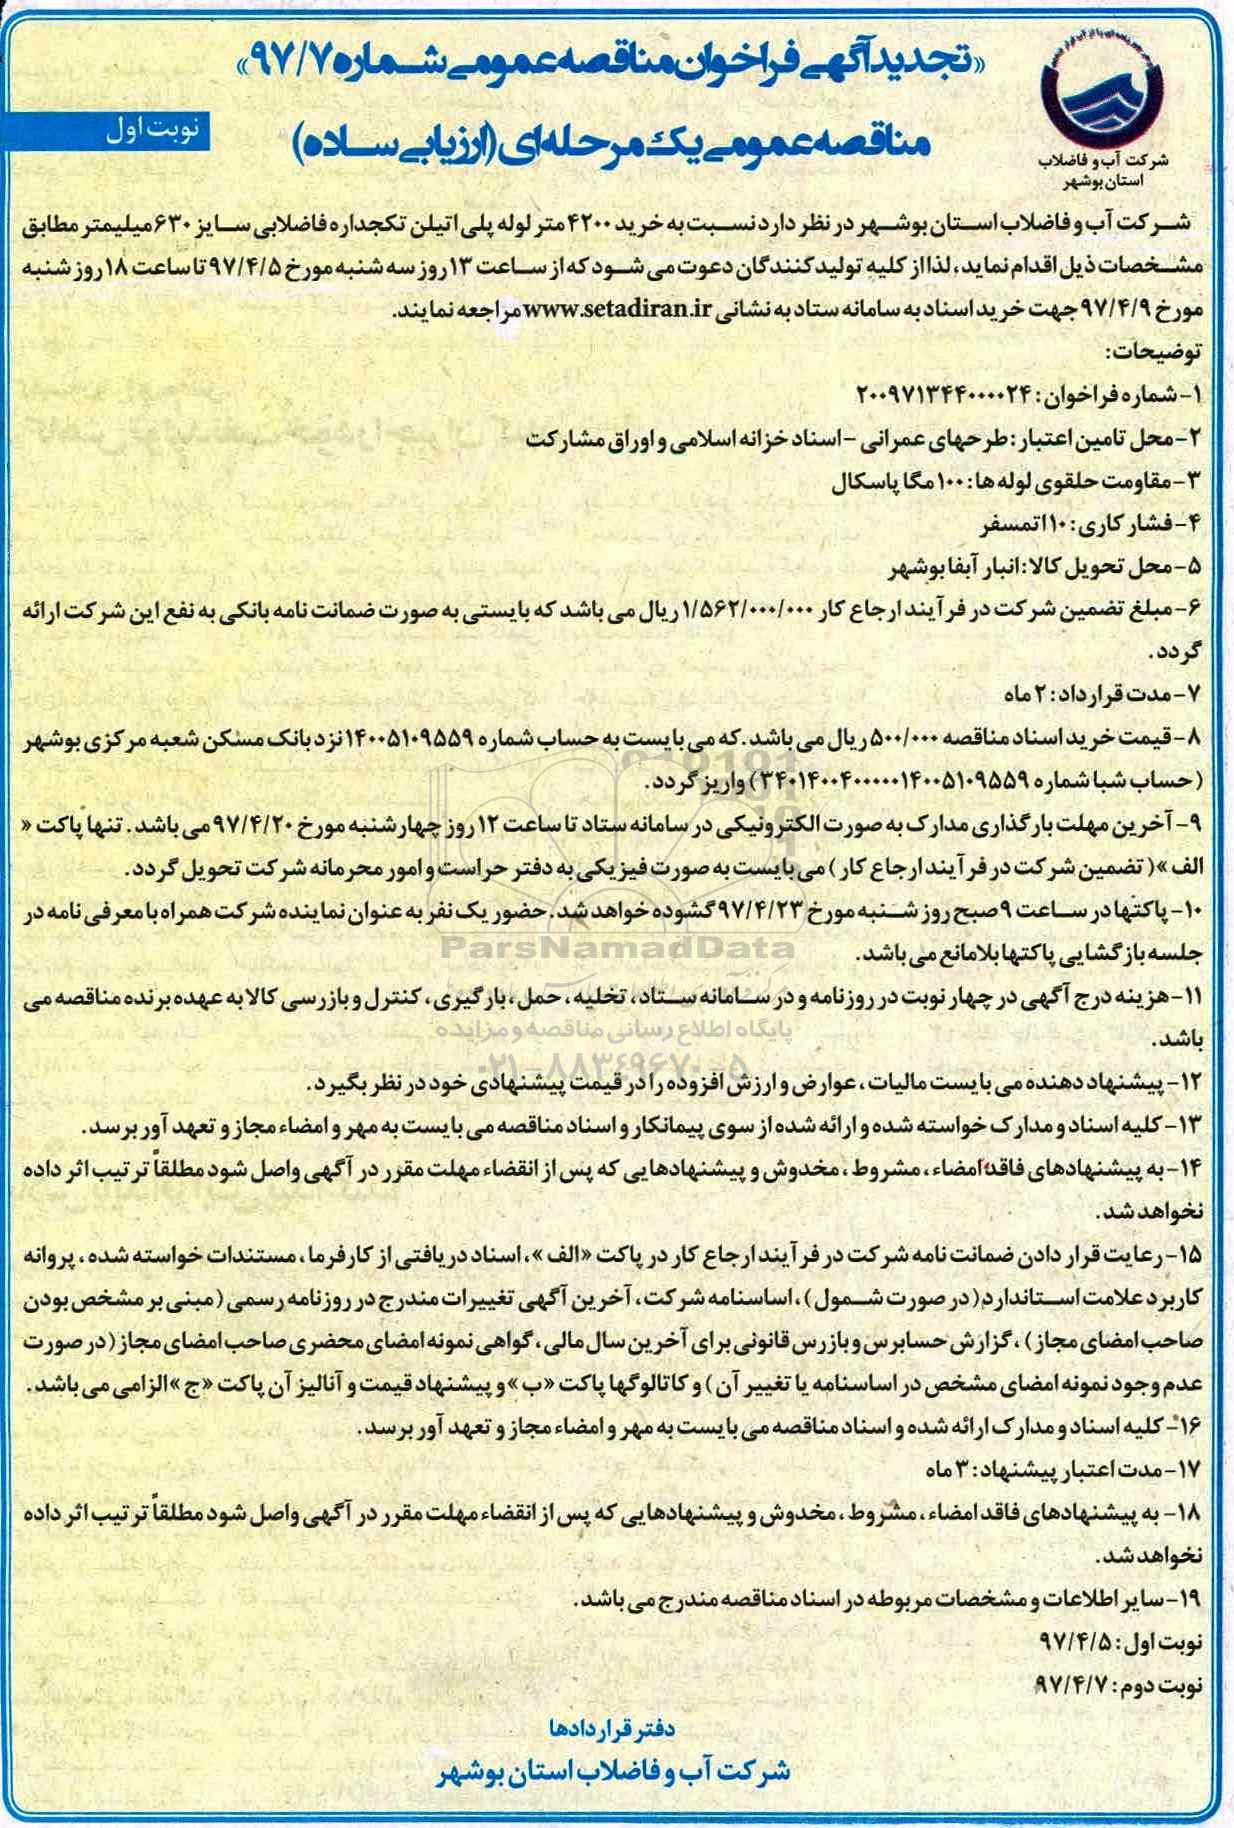 «تجدیدآگهی فراخوان مناقصه عمومی شماره ۹۷/۷»
نوبت اول
مناقصه عمومی یک مرحله ای (ارزیابی ساده)
شرکت آب و فاضلاب
استان بوشهر
شرکت آب و فاضلاب استان بوشهر در نظر دارد نسبت به خرید ۴۲۰۰ متر لوله پلی اتیلن تکجداره فاضلابی سایز ۶۳۰ میلیمتر مطابق
مشخصات ذیل اقدام نماید، لذا از کلیه تولید کنندگان دعوت می شود که از ساعت ۱۳ روز سه شنبه مورخ ۹۷/۴/۵ تا ساعت ۱۸ روز شنبه
مورخ ۹۷/۴/۹ جهت خرید اسناد به سامانه ستاد به نشانی www.setadiran.ir مراجعه نمایند.
توضیحات:
۱- شماره فراخوان: ۲۰۰۹۷۱۳۴۴۰۰۰۰۲۴
۲- محل تامین اعتبار: طرحهای عمرانی - اسناد خزانه اسلامی و اوراق مشارکت
۳- مقاومت حلقوی لوله ها: ۱۰۰ مگا پاسکال
۴- فشار کاری: ۱۰ اتمسفر
۵- محل تحویل کالا: انبار آبفا بوشهر
۶- مبلغ تضمین شرکت در فرآیند ارجاع کار ۱/۵۶۲/۰۰۰/۰۰۰ ریال می باشد که بایستی به صورت ضمانت نامه بانکی به نفع این شرکت ارائه
گردد.
۷- مدت قرارداد: ۲ ماه
۸- قیمت خرید اسناد مناقصه ۵۰۰/۰۰۰ ریال می باشد. که می بایست به حساب شماره ۱۴۰۰۵۱۰۹۵۵۹ نزد بانک مسکن شعبه مرکزی بوشهر
(حساب شبا شماره ۳۴۰۱۴۰۰۴۰۰۰۰۰۱۴۰۰۵۱۰۹۵۵۹) واریز گردد.
۹- آخرین مهلت بارگذاری مدارک به صورت الکترونیکی در سامانه ستاد تا ساعت ۱۲ روز چهارشنبه مورخ ۹۷/۴/۲۰ می باشد. تنها پاکت «
الف» (تضمین شرکت در فرآیند ارجاع کار) می بایست به صورت فیزیکی به دفتر حراست و امور محرمانه شرکت تحویل گردد.
۱۰- پاکتها در ساعت ۹ صبح روز شنبه مورخ ۹۷/۴/۲۳ گشوده خواهد شد. حضور یک نفر به عنوان نماینده شرکت همراه با معرفی نامه در
جلسه بازگشایی پاکتها بلامانع می باشد.
ParsNamadData
۱۱- هزینه درج آگهی در چهار نوبت در روزنامه و در سامانه ستاد، تخلیه، حمل، بارگیری، کنترل و بازرسی کالا به عهده برنده مناقصه می
باشد.
پایگاه اطلاع رسانی مناقصه و مزایده
۰۲۱-۸۸۳۴۹۶۷۰-۵
۱۲- پیشنهاد دهنده می بایست مالیات، عوارض و ارزش افزوده را در قیمت پیشنهادی خود در نظر بگیرد.
۱۳- کلیه اسناد و مدارک خواسته شده و ارائه شده از سوی پیمانکار و اسناد مناقصه می بایست به مهر و امضاء مجاز و تعهد آور برسد.
۱۴- به پیشنهادهای فاقد امضاء، مشروط، مخدوش و پیشنهادهایی که پس از انقضاء مهلت مقرر در آگهی واصل شود مطلقاً ترتیب اثر داده
نخواهد شد.
۱۵- رعایت قرار دادن ضمانت نامه شرکت در فرآیند ارجاع کار در پاکت «الف»، اسناد دریافتی از کارفرما، مستندات خواسته شده، پروانه
کاربرد علامت استاندارد (در صورت شمول)، اساسنامه شرکت، آخرین آگهی تغییرات مندرج در روزنامه رسمی (مبنی بر مشخص بودن
صاحب امضای مجاز)، گزارش حسابرس و بازرس قانونی برای آخرین سال مالی، گواهی نمونه امضای محضری صاحب امضای مجاز (در صورت
عدم وجود نمونه امضای مشخص در اساسنامه یا تغییر آن) و کاتالوگها پاکت «ب» و پیشنهاد قیمت و آنالیز آن پاکت «ج» الزامی می باشد.
۱۶- کلیه اسناد و مدارک ارائه شده و اسناد مناقصه می بایست به مهر و امضاء مجاز و تعهد آور برسد.
۱۷- مدت اعتبار پیشنهاد: ۳ ماه
۱۸- به پیشنهادهای فاقد امضاء، مشروط، مخدوش و پیشنهادهایی که پس از انقضاء مهلت مقرر در آگهی واصل شود مطلقاً ترتیب اثر داده
نخواهد شد.
۱۹- سایر اطلاعات و مشخصات مربوطه در اسناد مناقصه مندرج می باشد.
نوبت اول: ۹۷/۴/۵
نوبت دوم: ۹۷/۴/۷
دفتر قراردادها
شرکت آب و فاضلاب استان بوشهر